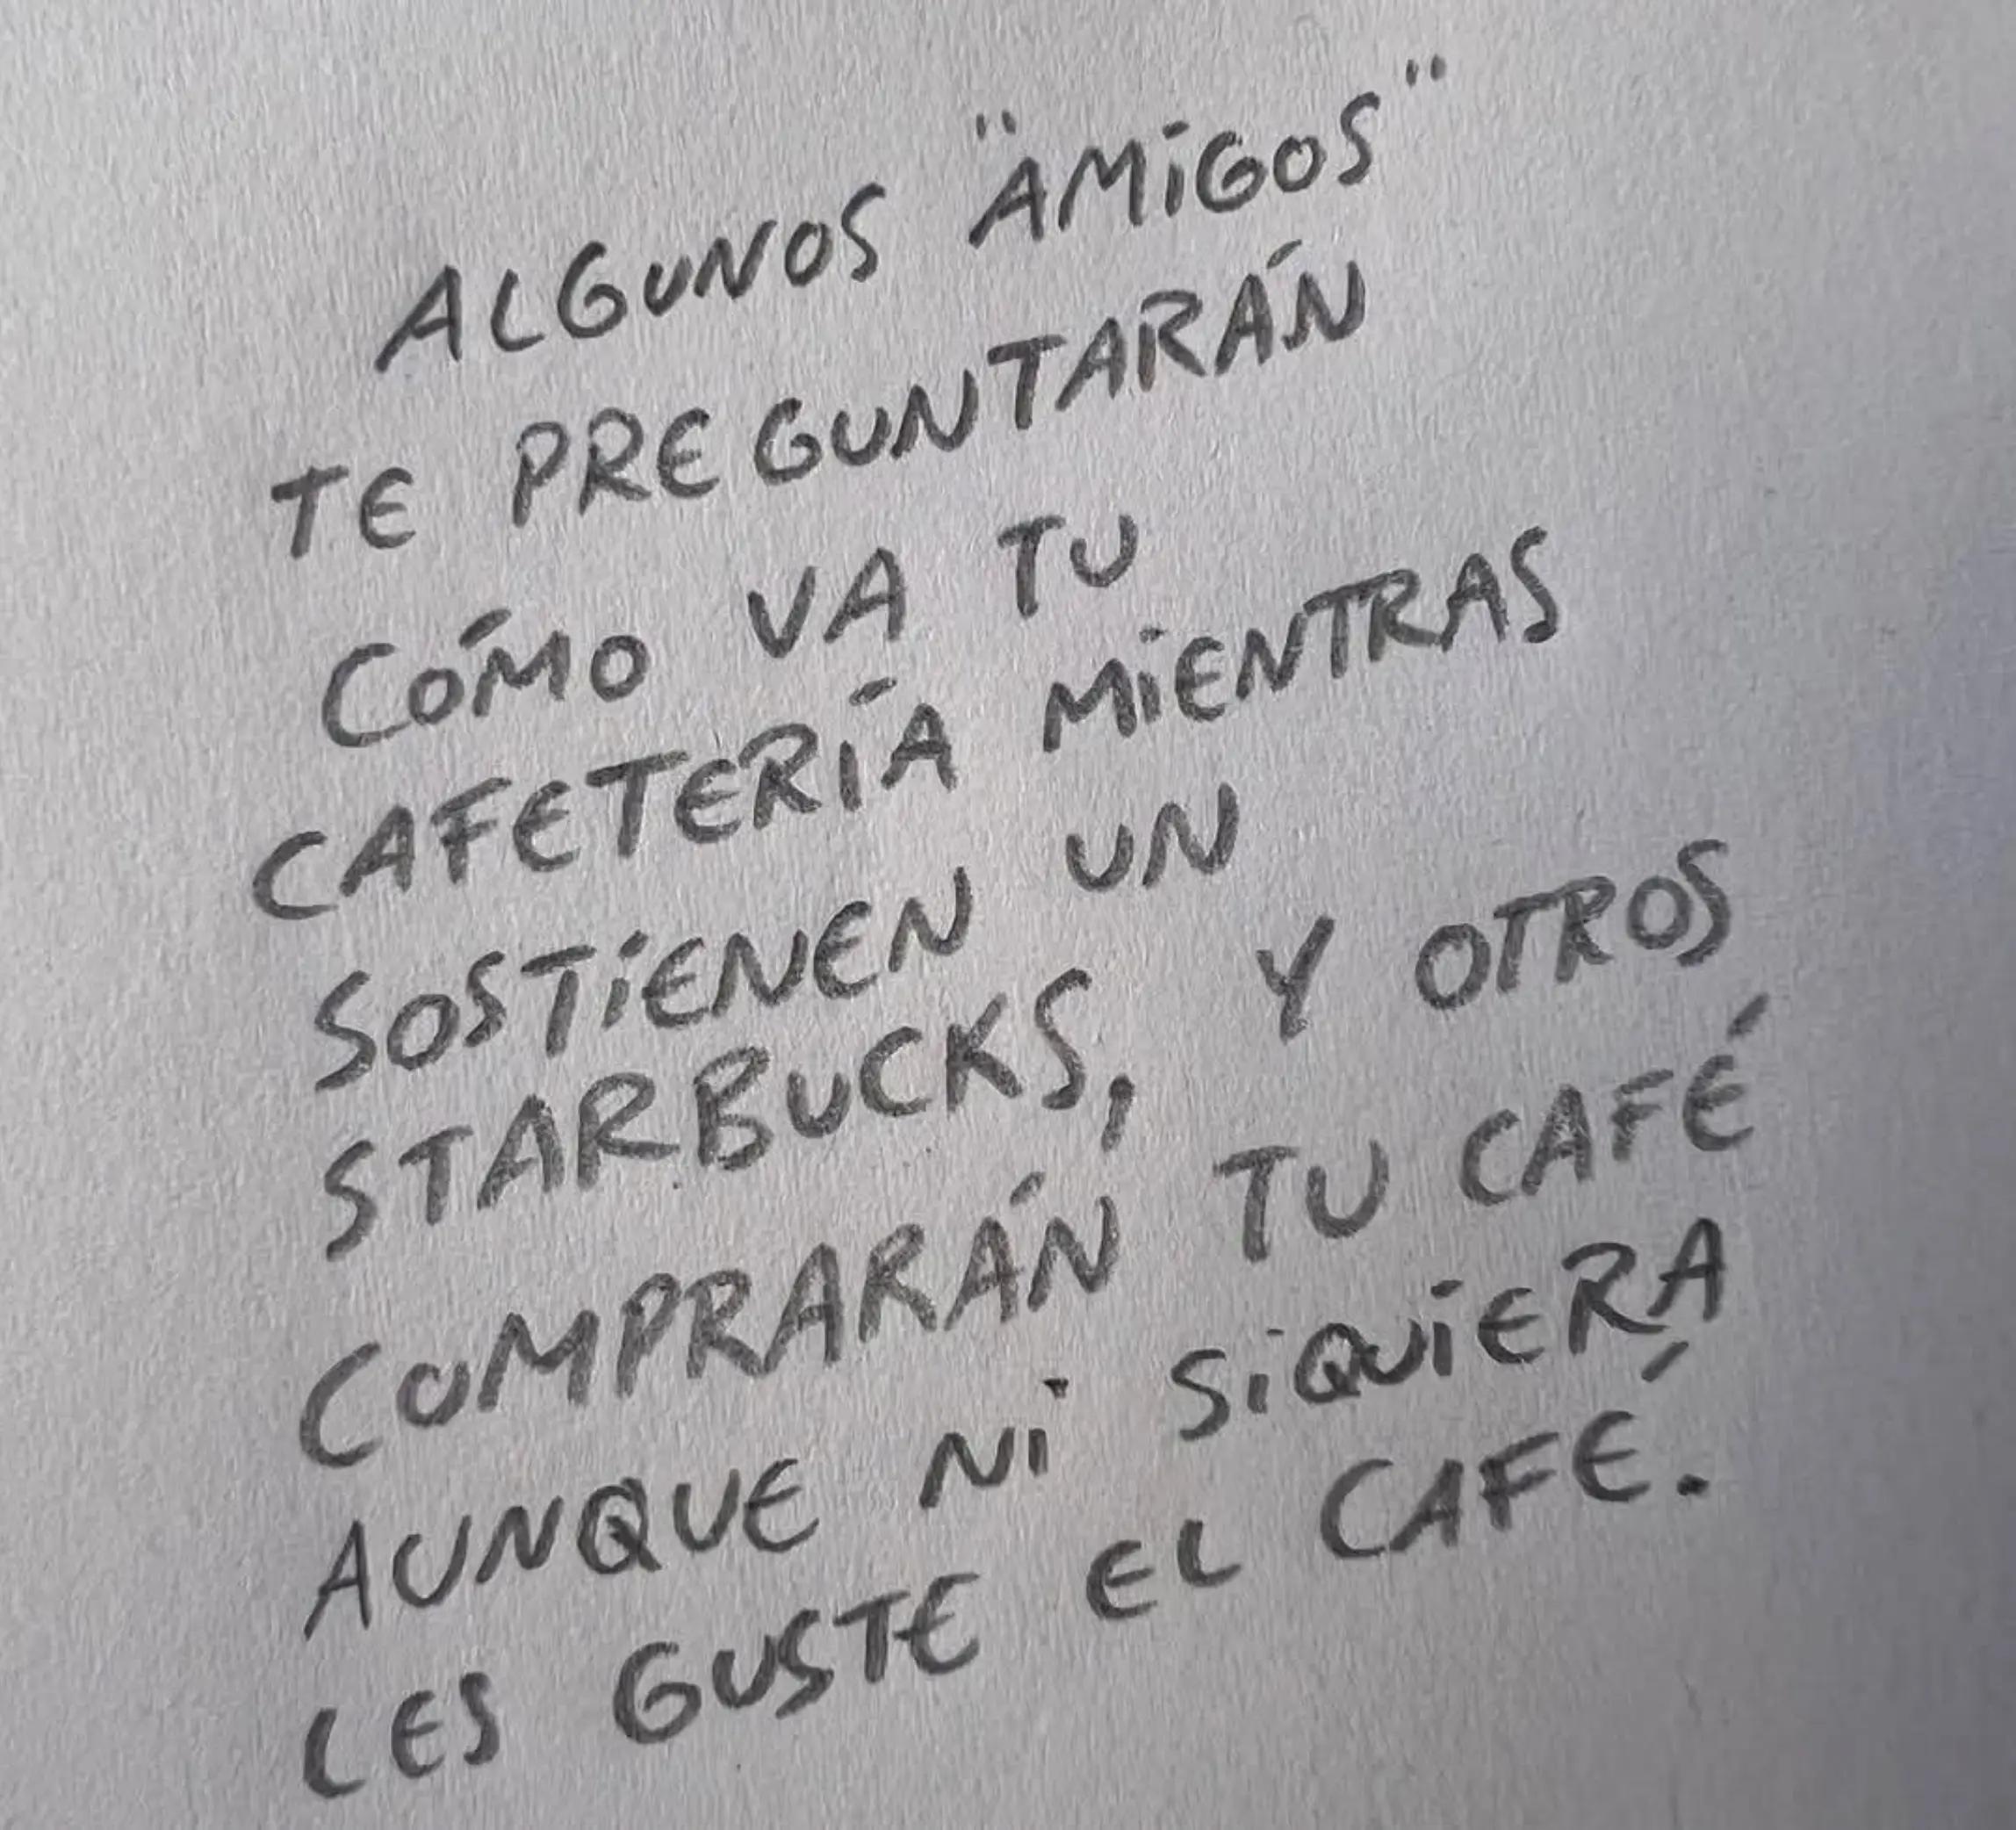 ALGUNOS "AMIGOS"
TE PREGUNTARÁN
CÓMO VA TU
CAFETERÍA MIENTRAS
SOSTIENEN UN
STARBUCKS, Y OTROS
COMPRARÁN TU CAFÉ
AUNQUE NI SIQUIERA
LES GUSTE EL CAFÉ.